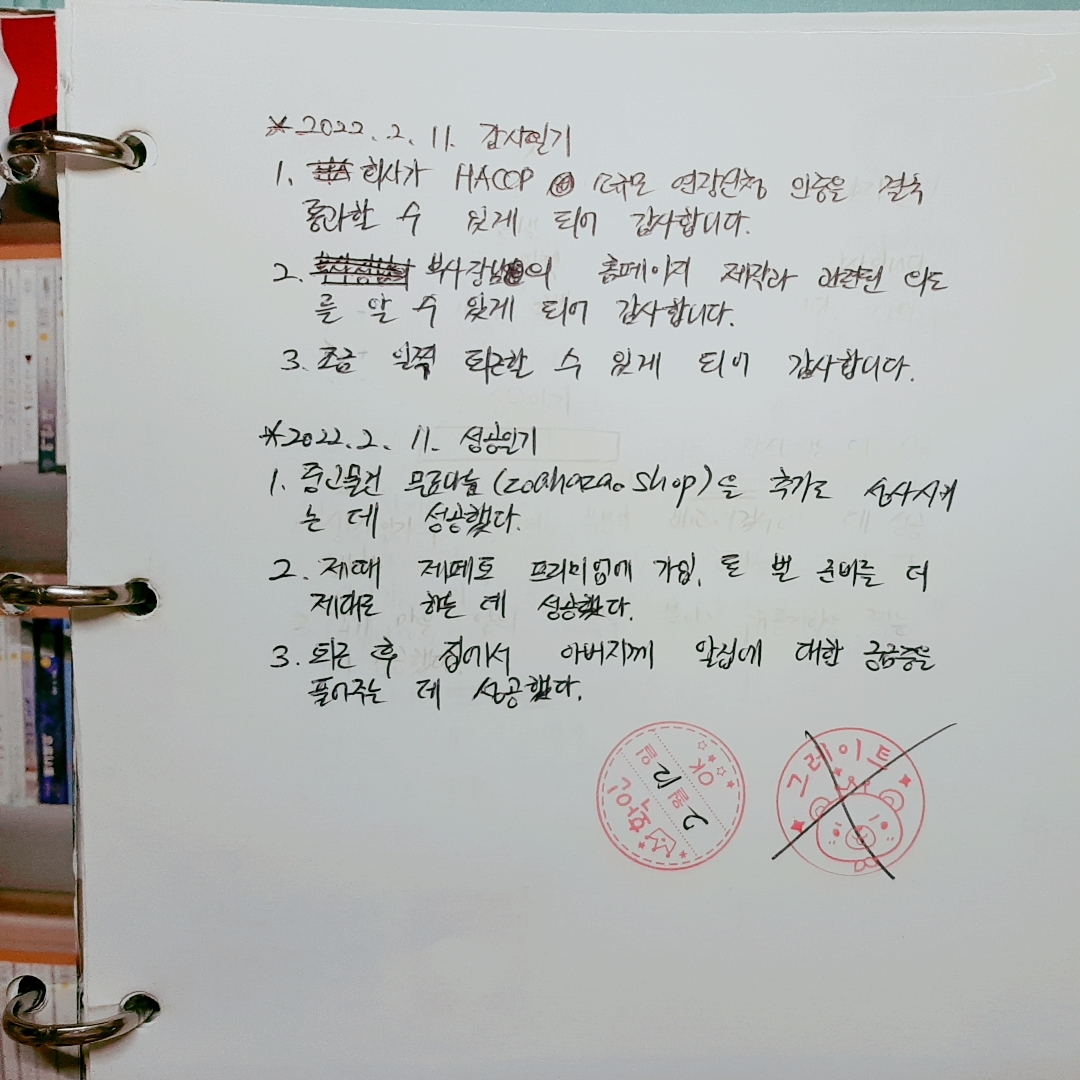 *2022. 2. 11. 감사일기
1. 회사가 HACCP 소규모 연장신청 인증을 결국
통과할 수 있게 되어 감사합니다.
2. 부사장님의 홈페이지 제작과 관련된 의도
를 알 수 있게 되어 감사합니다.
3. 조금 일찍 퇴근할 수 있게 되어 감사합니다.
*2022. 2. 11. 성공일기
1. 중고물건 무료나눔 (zoahazao shop)을 추가로 성사시키
는 데 성공했다.
2. 제때 제페토 프리미엄에 가입, 돈 벌 준비를 더
제대로 하는 데 성공했다.
3. 퇴근 후 집에서 아버지께 앞집에 대한 궁금증을
풀어주는 데 성공했다.
OK
2월 12일
확인
그레이트